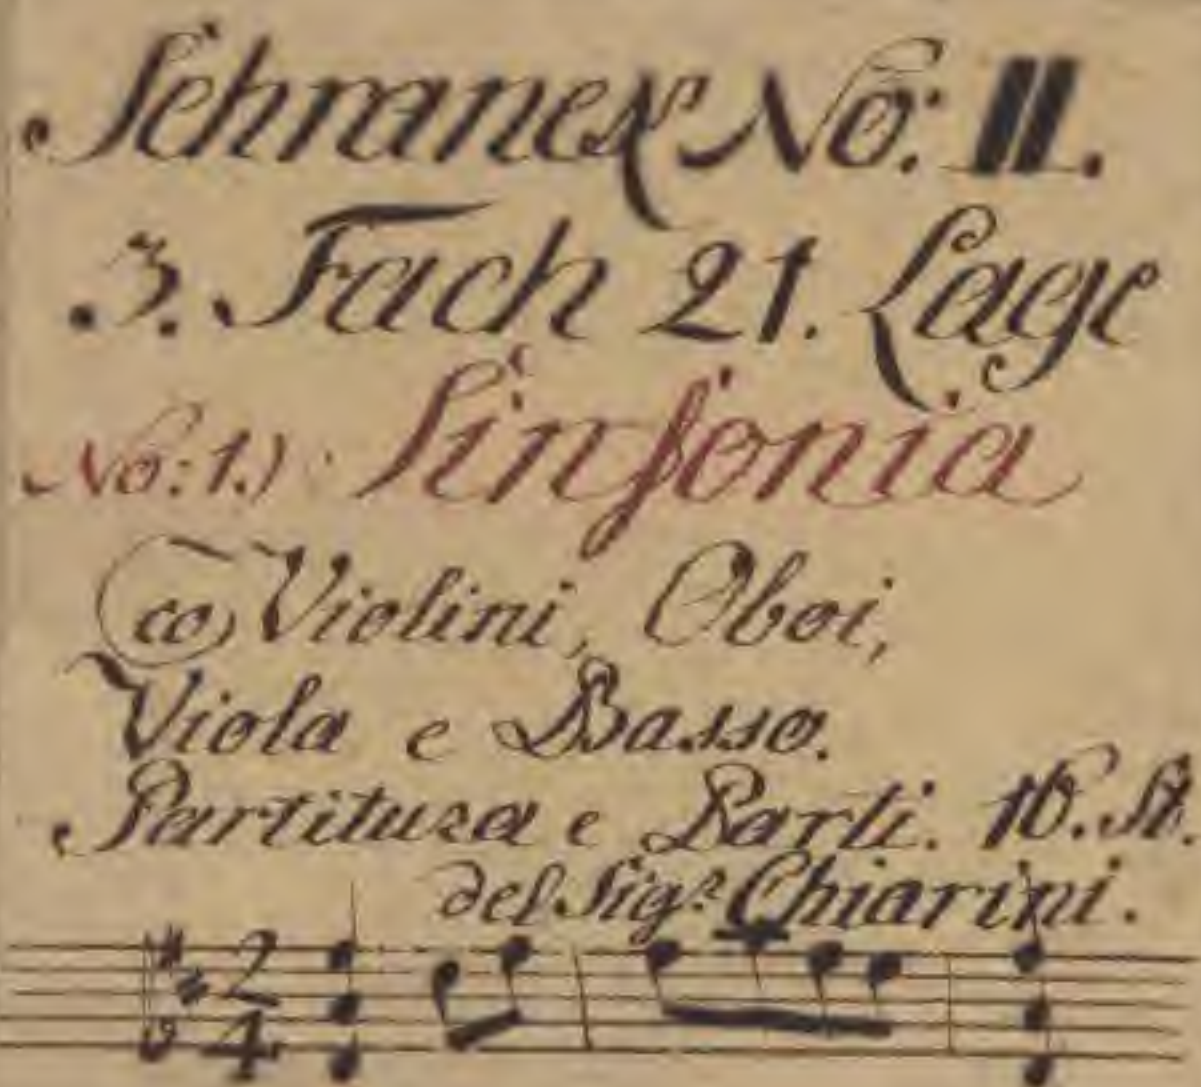 Schranck No: II.
3. Fach 21. Lage
No: 1.) Sinfonia
co Violini, Oboi,
Viola e Basso.
Partitura e Parti. 16. St.
del Sig.r Chiarini.
2
4